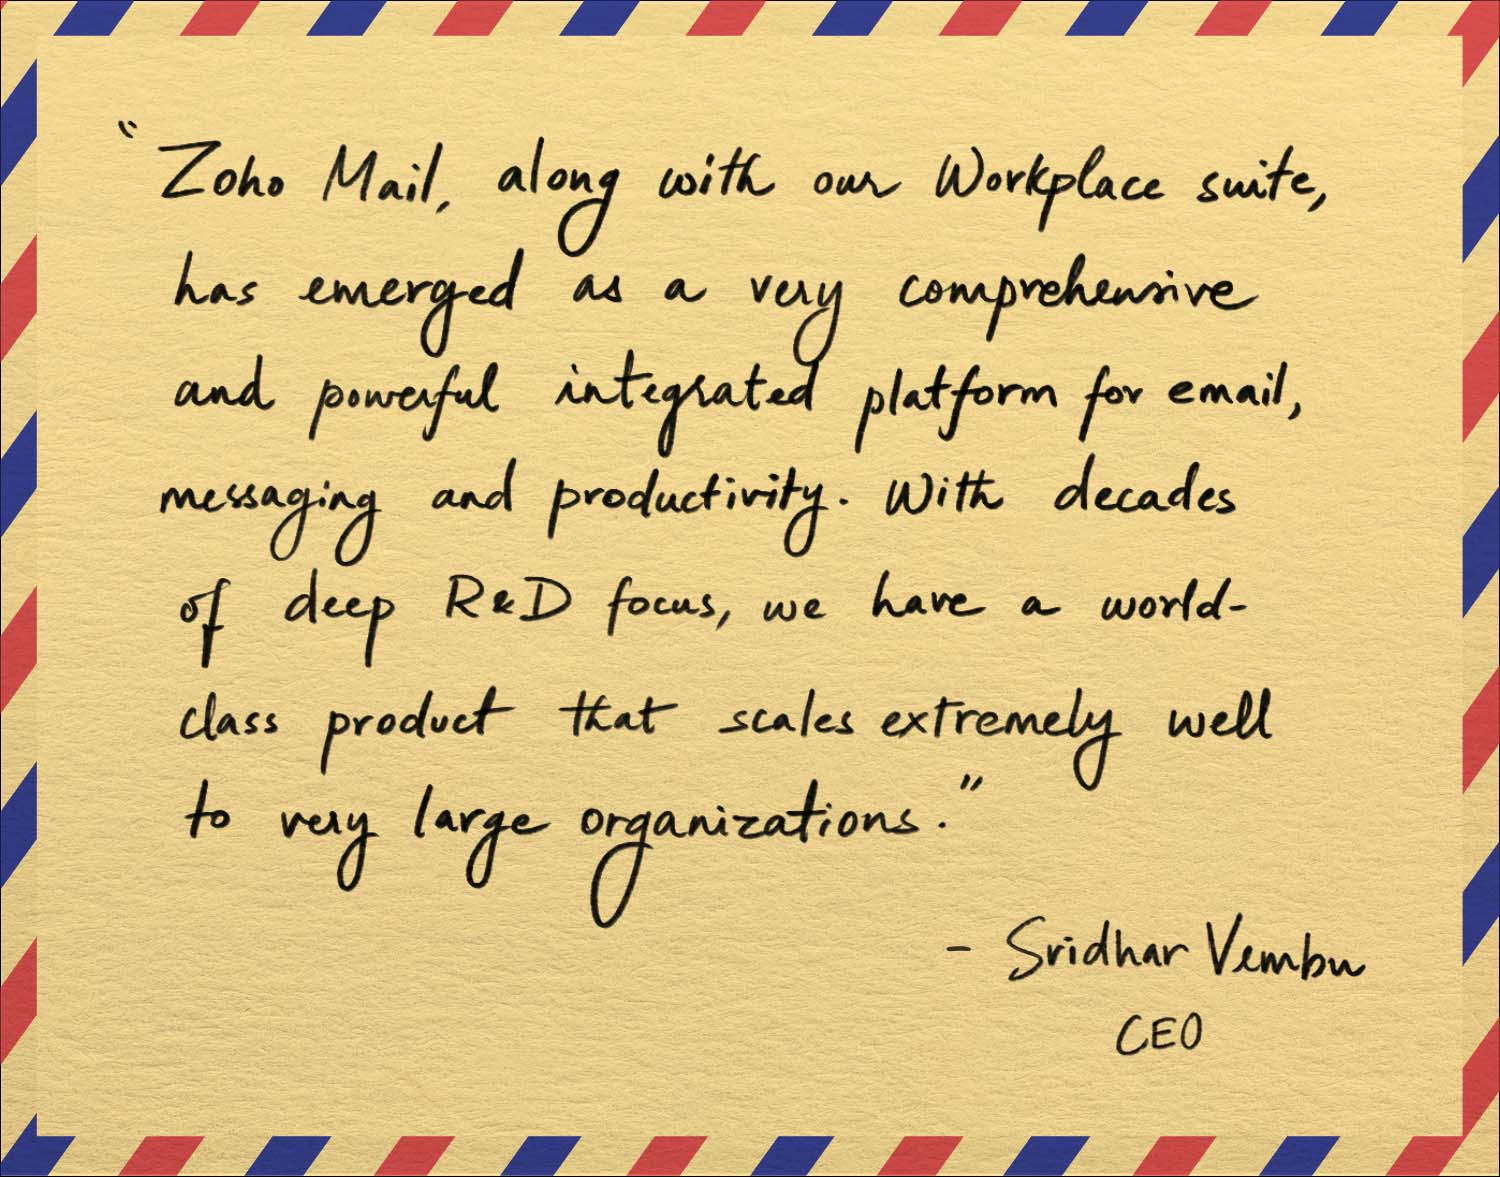 "Zoho Mail, along with our Workplace suite,
has emerged as a very comprehensive
and powerful integrated platform for email,
messaging and productivity. With decades
of deep R&D focus, we have a world-
class product that scales extremely well
to very large organizations."
- Sridhar Vembu
CEO